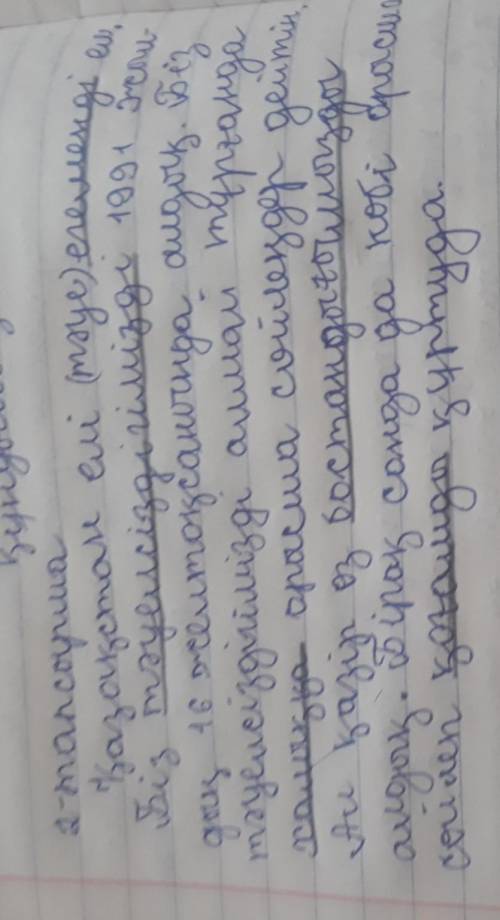 2-тапсырма
Қазақстан елі (тәуе) егеменді ел.
Біз тәуелсіздігімізді 1991 жыл-
дың 16 желтоқсанында алдық. Біз
тәуелсіздігімізді алмай тұрғанда
халыққа орысша сөйлеңдер дейтін.
Ал қазір өз бостандығымызды
алдық. Бірақ сонда да көбі орысша
сөйлеп қоғамды құртуда.